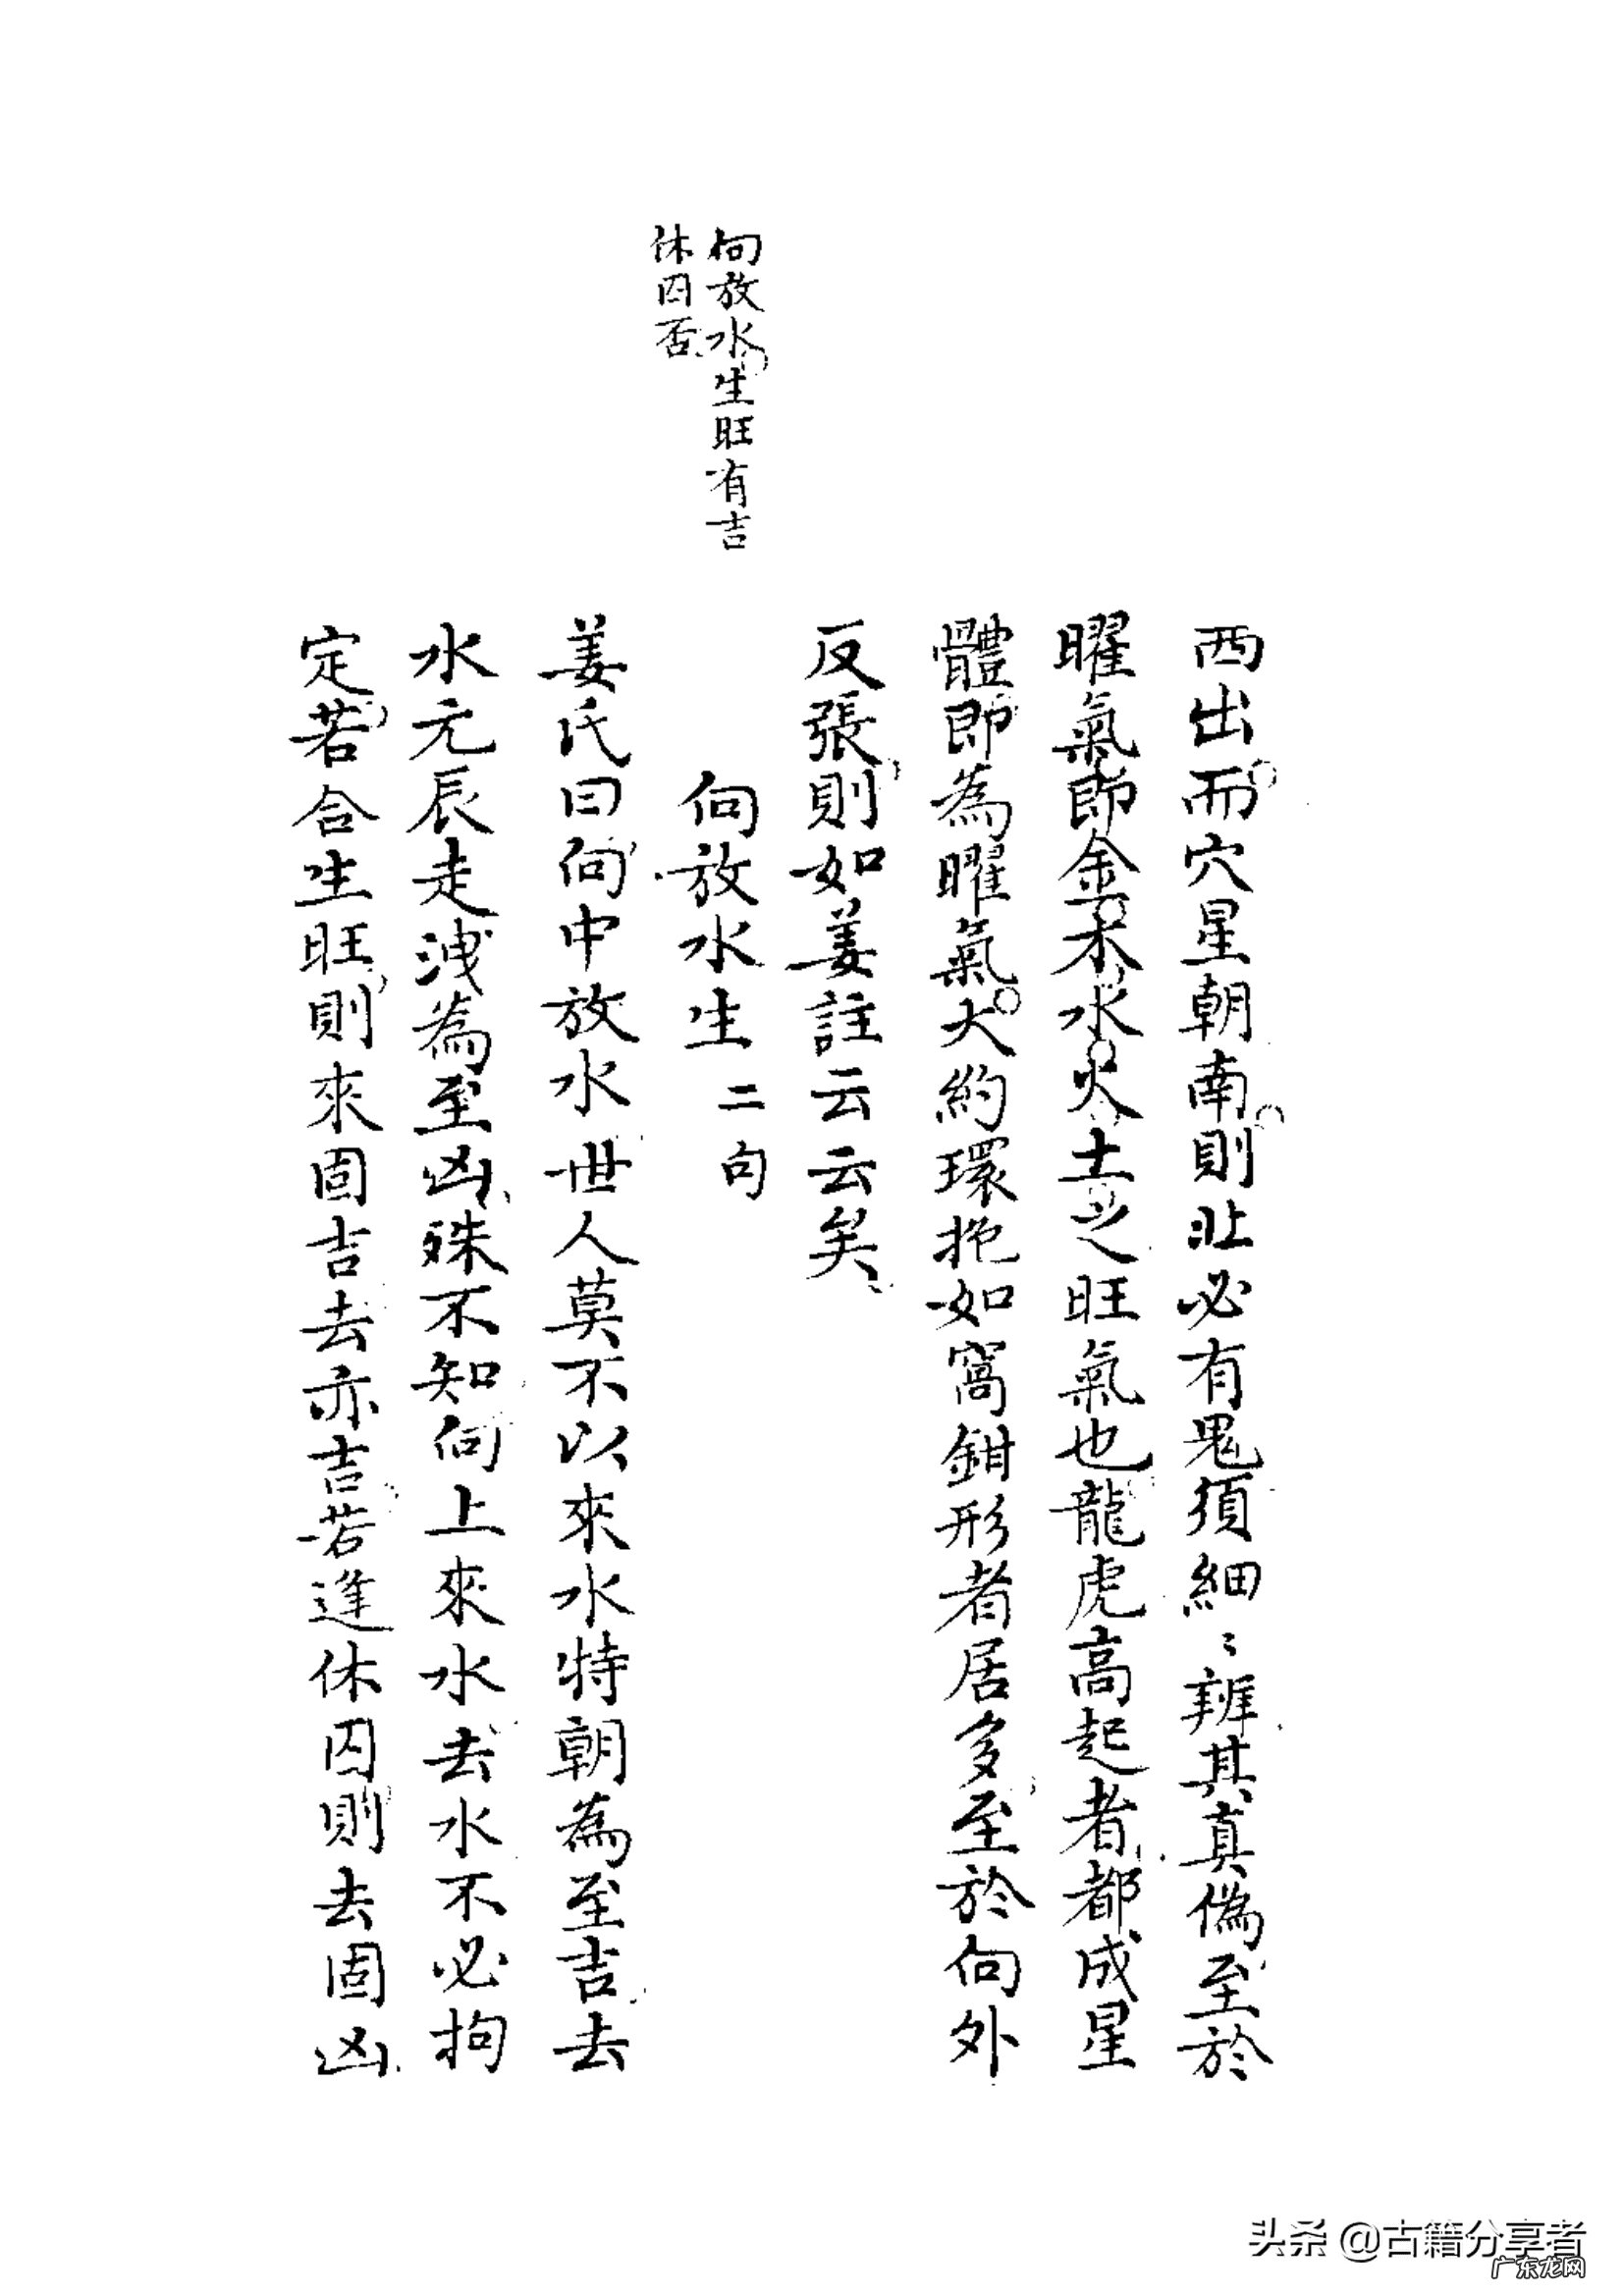 西出而穴星朝南則北必有鬼須細〻辨其真偽至於
曜氣即金木水火土之旺氣也龍虎高起者都成星
體即為曜氣大約環抱如窩鉗形者居多至於向外
反張則如姜註云云矣
向放水生旺有吉
休囚否
向放水生 二句
姜氏曰向中放水世人莫不以來水特朝為至吉去
水元辰走洩為至凶殊不知向上來水去水不必拘
定若合生旺則來固吉去亦吉若逢休囚則去固凶
头条 @古籍分享者
广东龙网